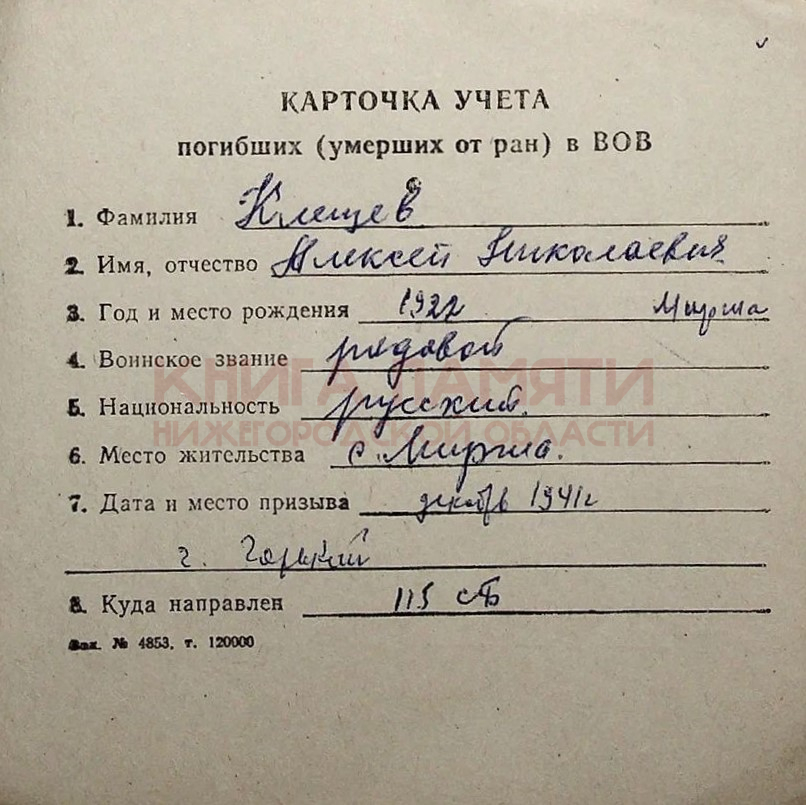 КАРТОЧКА УЧЕТА
погибших (умерших от ран) в ВОВ
1. Фамилия Клещев
2. Имя, отчество Алексей Николаевич
3. Год и место рождения 1922 Мирша
4. Воинское звание рядовой
КНИГА ПАМЯТИ
5. Национальность русский.
НИЖЕГОРОДСКОЙ ОБЛАСТИ
6. Место жительства с. Мирша.
7. Дата и место призыва декабрь 1941г
г. Горький
8. Куда направлен 115 сб
Зак. № 4853, т. 120000